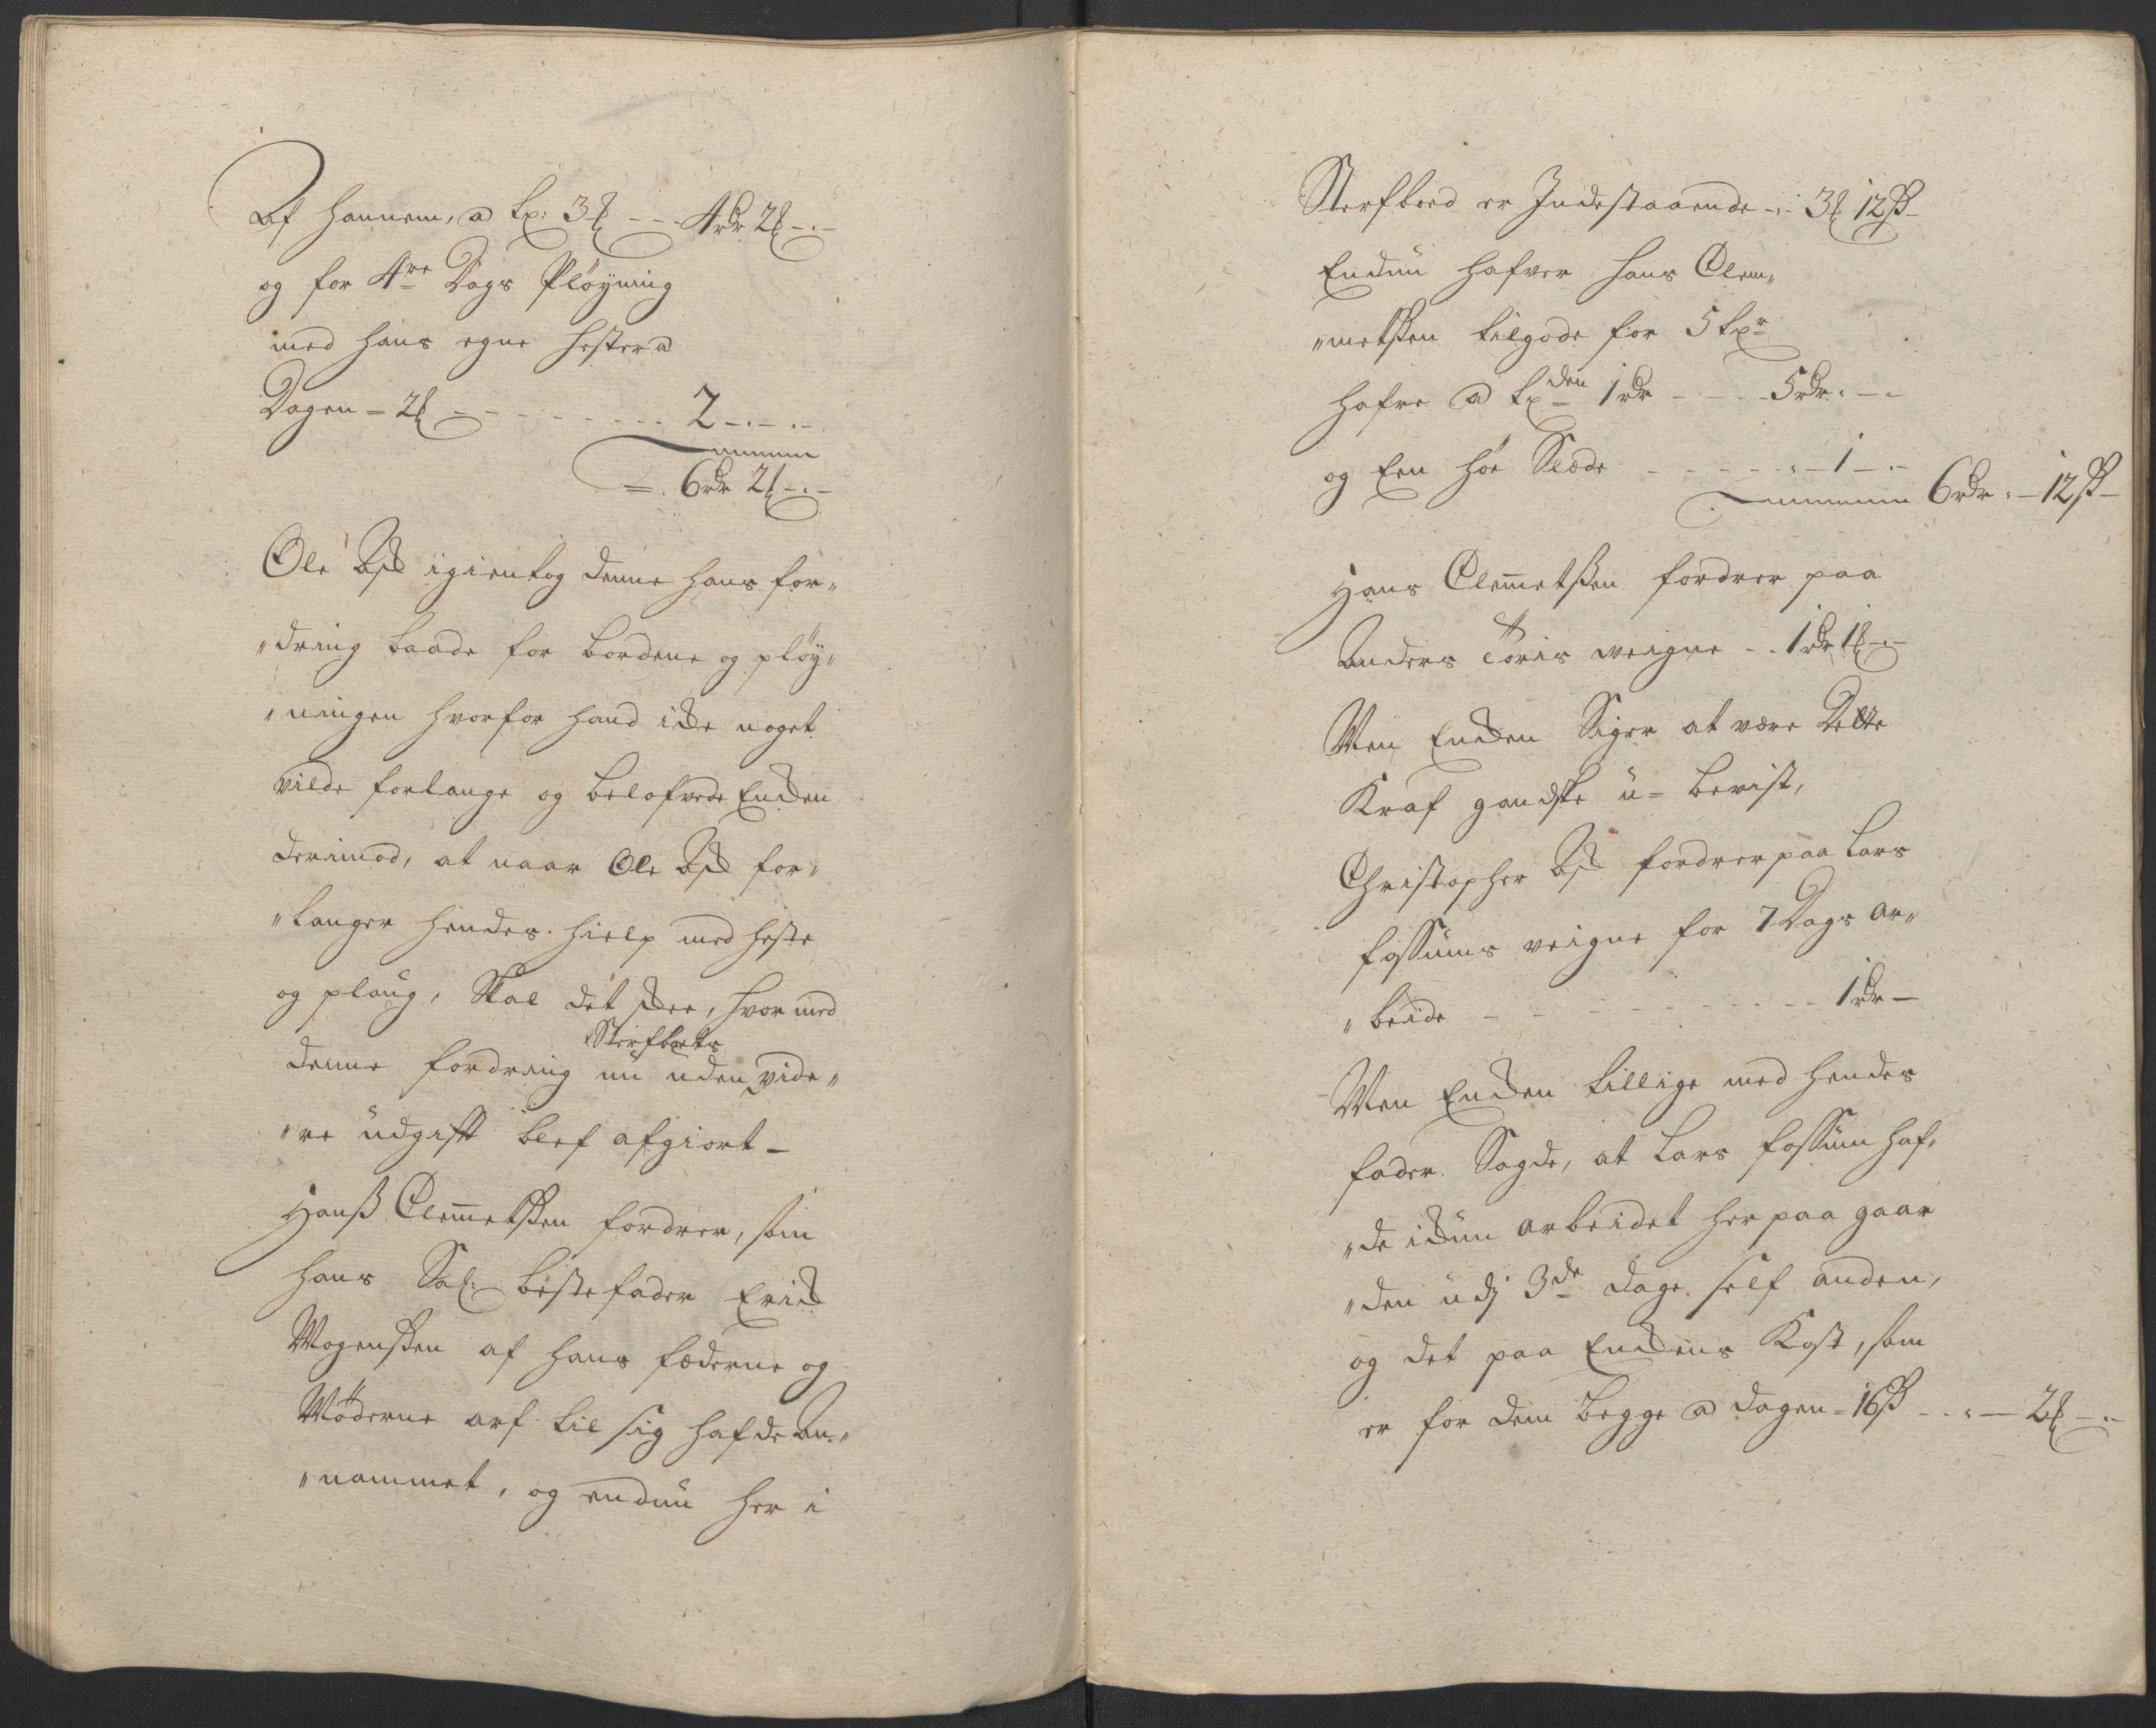 Af hannem, a Lp: 3 ꝑ - - - 4 rdr 2 ꝑ - . -
og for 4re Dags Pløyning
med hans egne hester a
Dagen - 2 ꝑ - - - - - - - 2 - . - . -
= . 6 rdr 2 ꝑ - . -
Ole Ask igientog denne hans for„
„dring baade for bordene og pløy„
„ningen hvorfor hand icke noget
vilde forlange og belofvede Encken
derimod, at naar Ole Ask for„
„langer hendes hielp med heste
og ploug, Skal det skee, hvor med
Sterfboets
denne fordring nu uden vide„
„re udgift blef afgiort -
Hanss Clemmetssen fordrer, som
hans Sal: bestefader Erick
Mogenssen af hans fæderne og
Møderne arf til sig hafde An„
„nammet, og endnu her i
Sterfboed er Indestaaende - : 3 ꝑ 12 ß -
Endnu hafver Hans Clem„
„metssen tilgode for 5 Lpr
hafre a Lp den 1 rdr - - - 5 rdr . - -
og Een høe Slæde - - - - - . - 1 - . -
6 rdr . - 12 ß -
Hans Clemmetssen fordrer paa
Anders Toris veigne - . 1 rdr 1 ꝑ - . -
Men Encken Siger at være Dette
Kraf gandske u- bevist,
Christopher Ask fordrer paa Lars
fossums veigne for 7 Dags ar„
„beide - - - - - - - - - - 1 rdr -
Men Encken tillige med hendes
fader Sagde, at Lars fossum haf„
„de ickun arbeidet her paa gaar
„den udj 3de dage self anden,
og det paa Enckens Kost, som
er for dem begge a dagen - 16 ß - . . - 2 ꝑ - . -